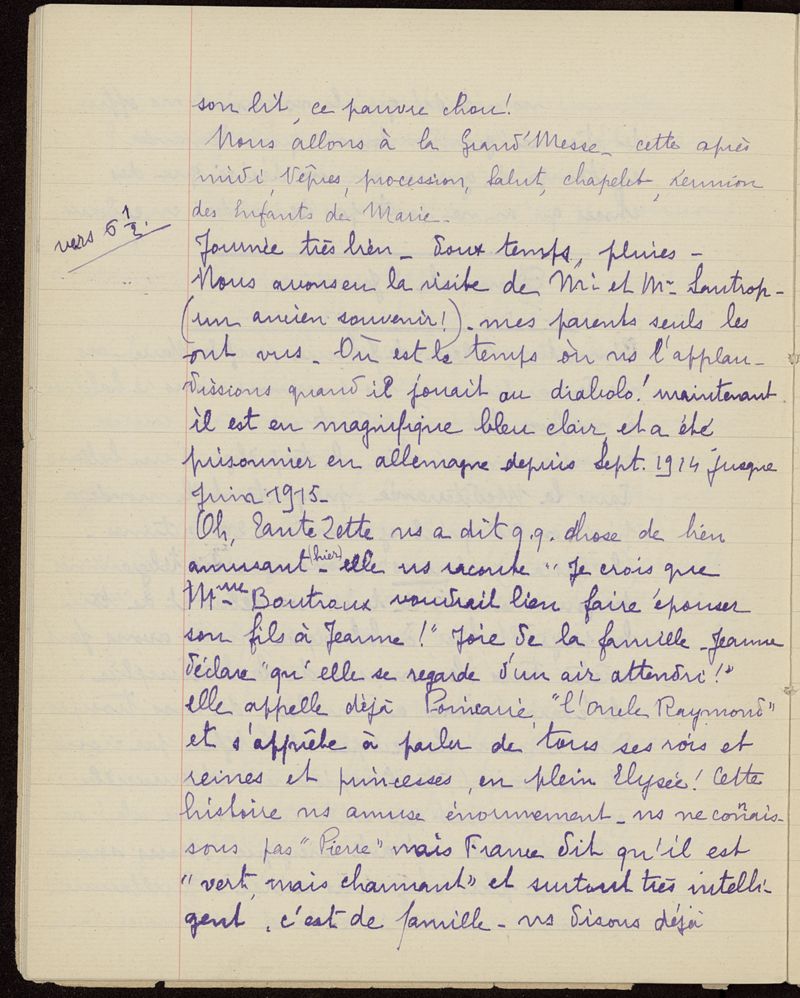 son lit, ce pauvre chou!
Nous allons à la Grand'Messe - cette après
midi, Vêpres, procession, Salut, chapelet, réunion
des Enfants de Marie -
vers 6 1/2.
Journée très bien - doux temps, pluies -
Nous avons eu la visite de Mr et Mme Lautrop -
(un ancien souvenir!) - mes parents seuls les
ont vus - Où est le temps où ns l'applau-
dissions quand il jouait au diabolo! maintenant
il est en magnifique bleu clair, et a été
prisonnier en allemagne depuis Sept. 1914 jusque
Juin 1915 -
Oh, Tante Zette ns a dit q.q. chose de bien
amusant (hier) - elle ns raconte "Je crois que
Mme Boutroux voudrait bien faire épouser
son fils à Jeanne!" Joie de la famille - Jeanne
déclare "qu'elle se regarde d'un air attendri!"
elle appelle déjà Poincarré, "l'Oncle Raymond"
et s'apprête à parler de tous ses rois et
reines et princesses, en plein Elysée! Cette
histoire ns amuse énormément - ns ne connais-
sons pas "Pierre" mais France dit qu'il est
"vert, mais charmant" et surtout très intelli-
gent, c'est de famille - ns disons déjà